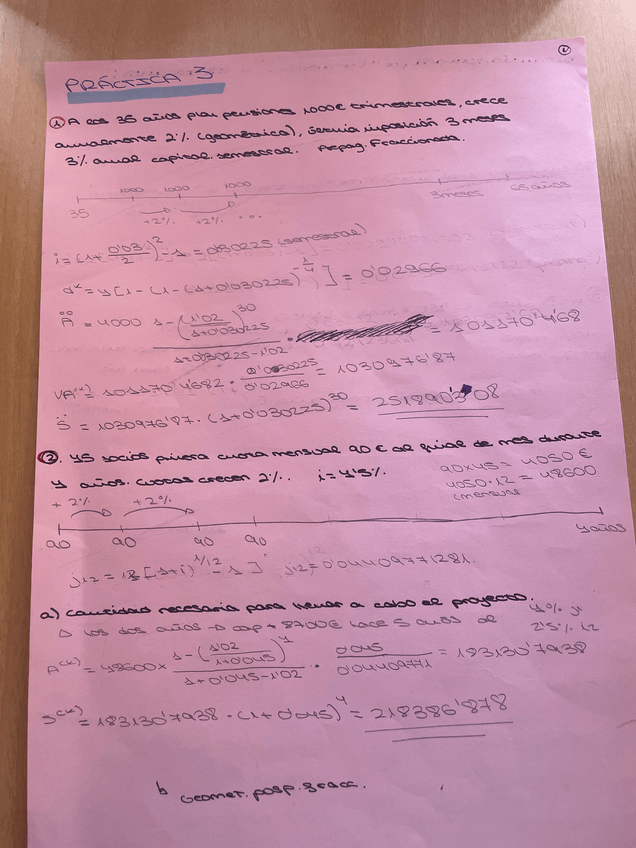 PRÁCTICA 3
① A los 35 años plan pensiones 1000€ trimestrales, crece
anualmente 2% (geométrica), última imposición 3 meses
3% anual capital. semestral. Prepag. Fraccionada.
1000 1000 1000
35 +2% +2% ... 3 meses 65 años
i = (1 + 0'03/2)² - 1 = 0'030225 (semestral)
= 4 [1 - (1 - (1+0'030225)^-1/4] = 0'02966
Ä = 4000 1 - (1'02/1+0'030225)^30 / 1+0'030225 - 1'02 · = 101170'4'68
VA^(k) = 101170'4682 · 0'030225/0'02966 = 1030976'87
S̈ = 1030976'87 · (1+0'030225)^30 = 2518903'08
②. 45 socios cuota mensual 90€ al final de mes durante
4 años. cuotas crecen 2%. i = 4'5%
90x45 = 4050€
4050·12 = 48600
(mensual
+2% +2%
90 90 90 90 4 años
j12 = 12 [1+i)^1/12 - 1] j12 = 0'04409771281.
a) Cantidad necesaria para llevar a cabo el proyecto.
▷ los dos años → cap + 8700€ hace 5 años al 4% j4
2'5% i2
A^(k) = 48600 x 1 - (1'02/1+0'045)^4 / 1+0'045-1'02 · 0'045/0'04409771 = 183130'7938
S^(k) = 183130'7938 · (1+0'045)^4 = 218386'878
Geomet. posp. fracc.